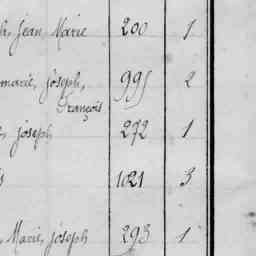 Jean Marie 200 1
marie, joseph, 995 2
François
joseph 272 1
1021 3
Marie, joseph 293 1